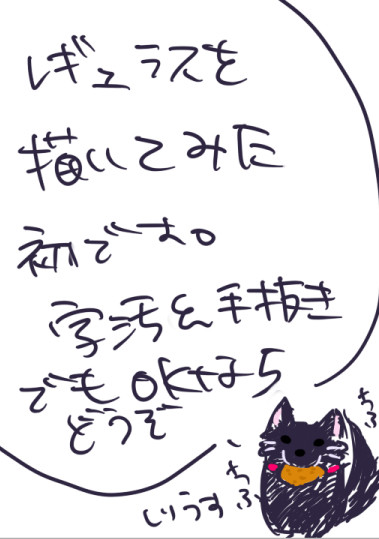 レギュラスを
描いてみた
初です。
字汚え手抜き
でもOKなら
どうぞ
ちふ
ちふ
しりうす